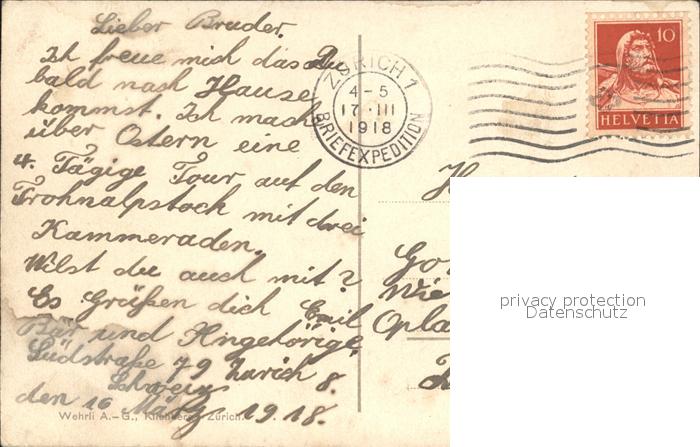 Lieber Bruder.
Ich freue mich das Du
bald nach Hause
kommst. Ich mach
über Ostern eine
4. Tägige Tour auf den
Frohnalpstock mit drei
Kammeraden.
Wilst du auch mit?
Es Grüßen dich Emil
Bär und Angehörige
Südstraße 79 Zürich 8.
Schweiz
den 16 März 1918.
Wehrli A.-G., Kilchberg Zürich.
ZÜRICH 1
4-5
17.III
1918
BRIEFEXPEDITION
10
HELVETIA
privacy protection
Datenschutz